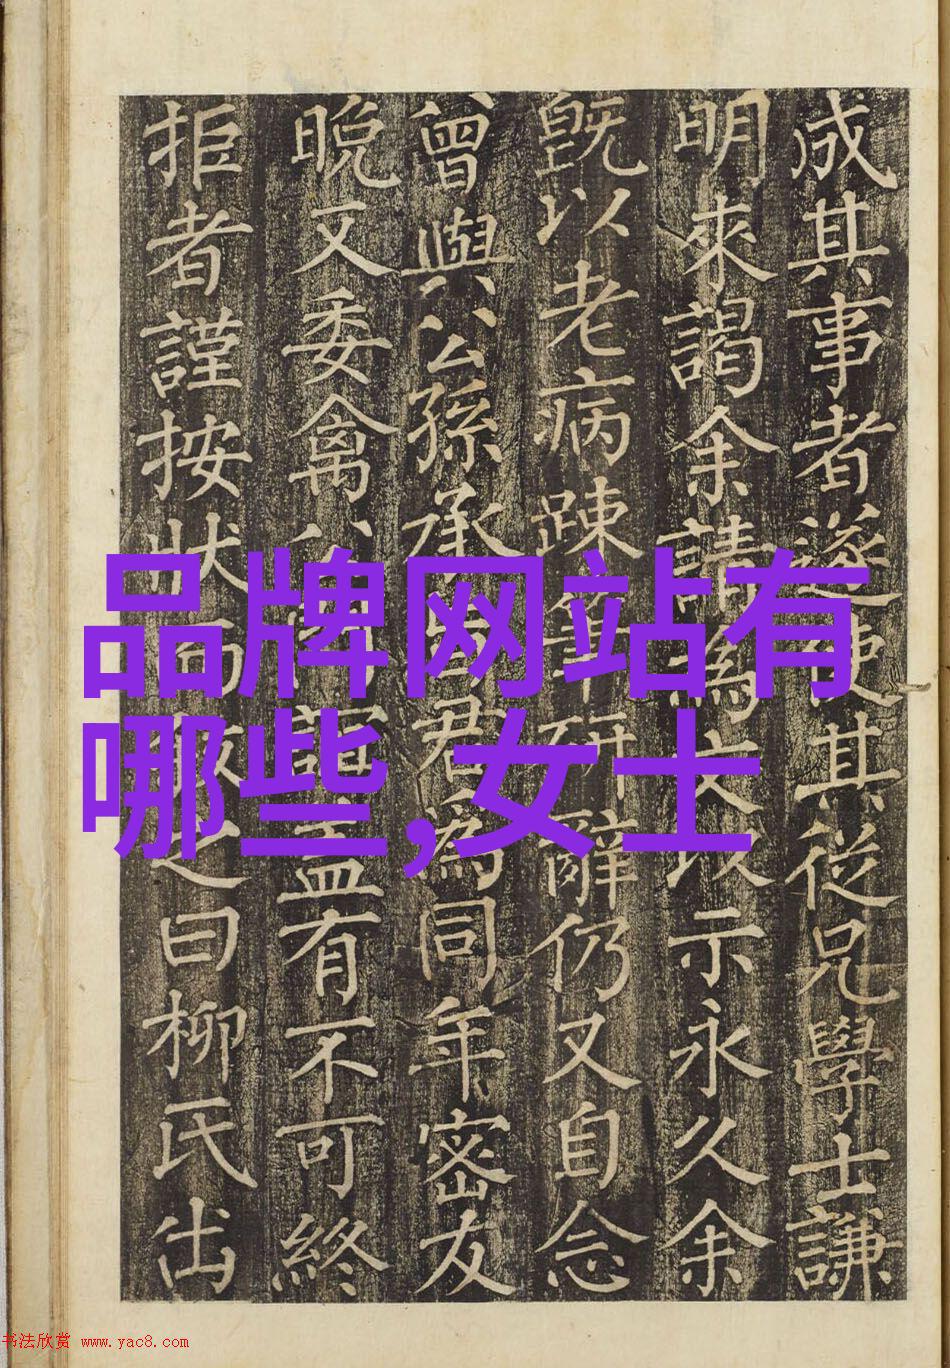 成其事者遂使其從兄學士謙
明來謁余請爲文以示永久余
旣以老病踈筆硏辭仍又自念
曾與公孫承君爲同年密友
晚又委禽盖有不可終
拒者謹按狀而之曰柳氏出
品牌网站有
哪些,女士
书法欣赏 www.yac8.com